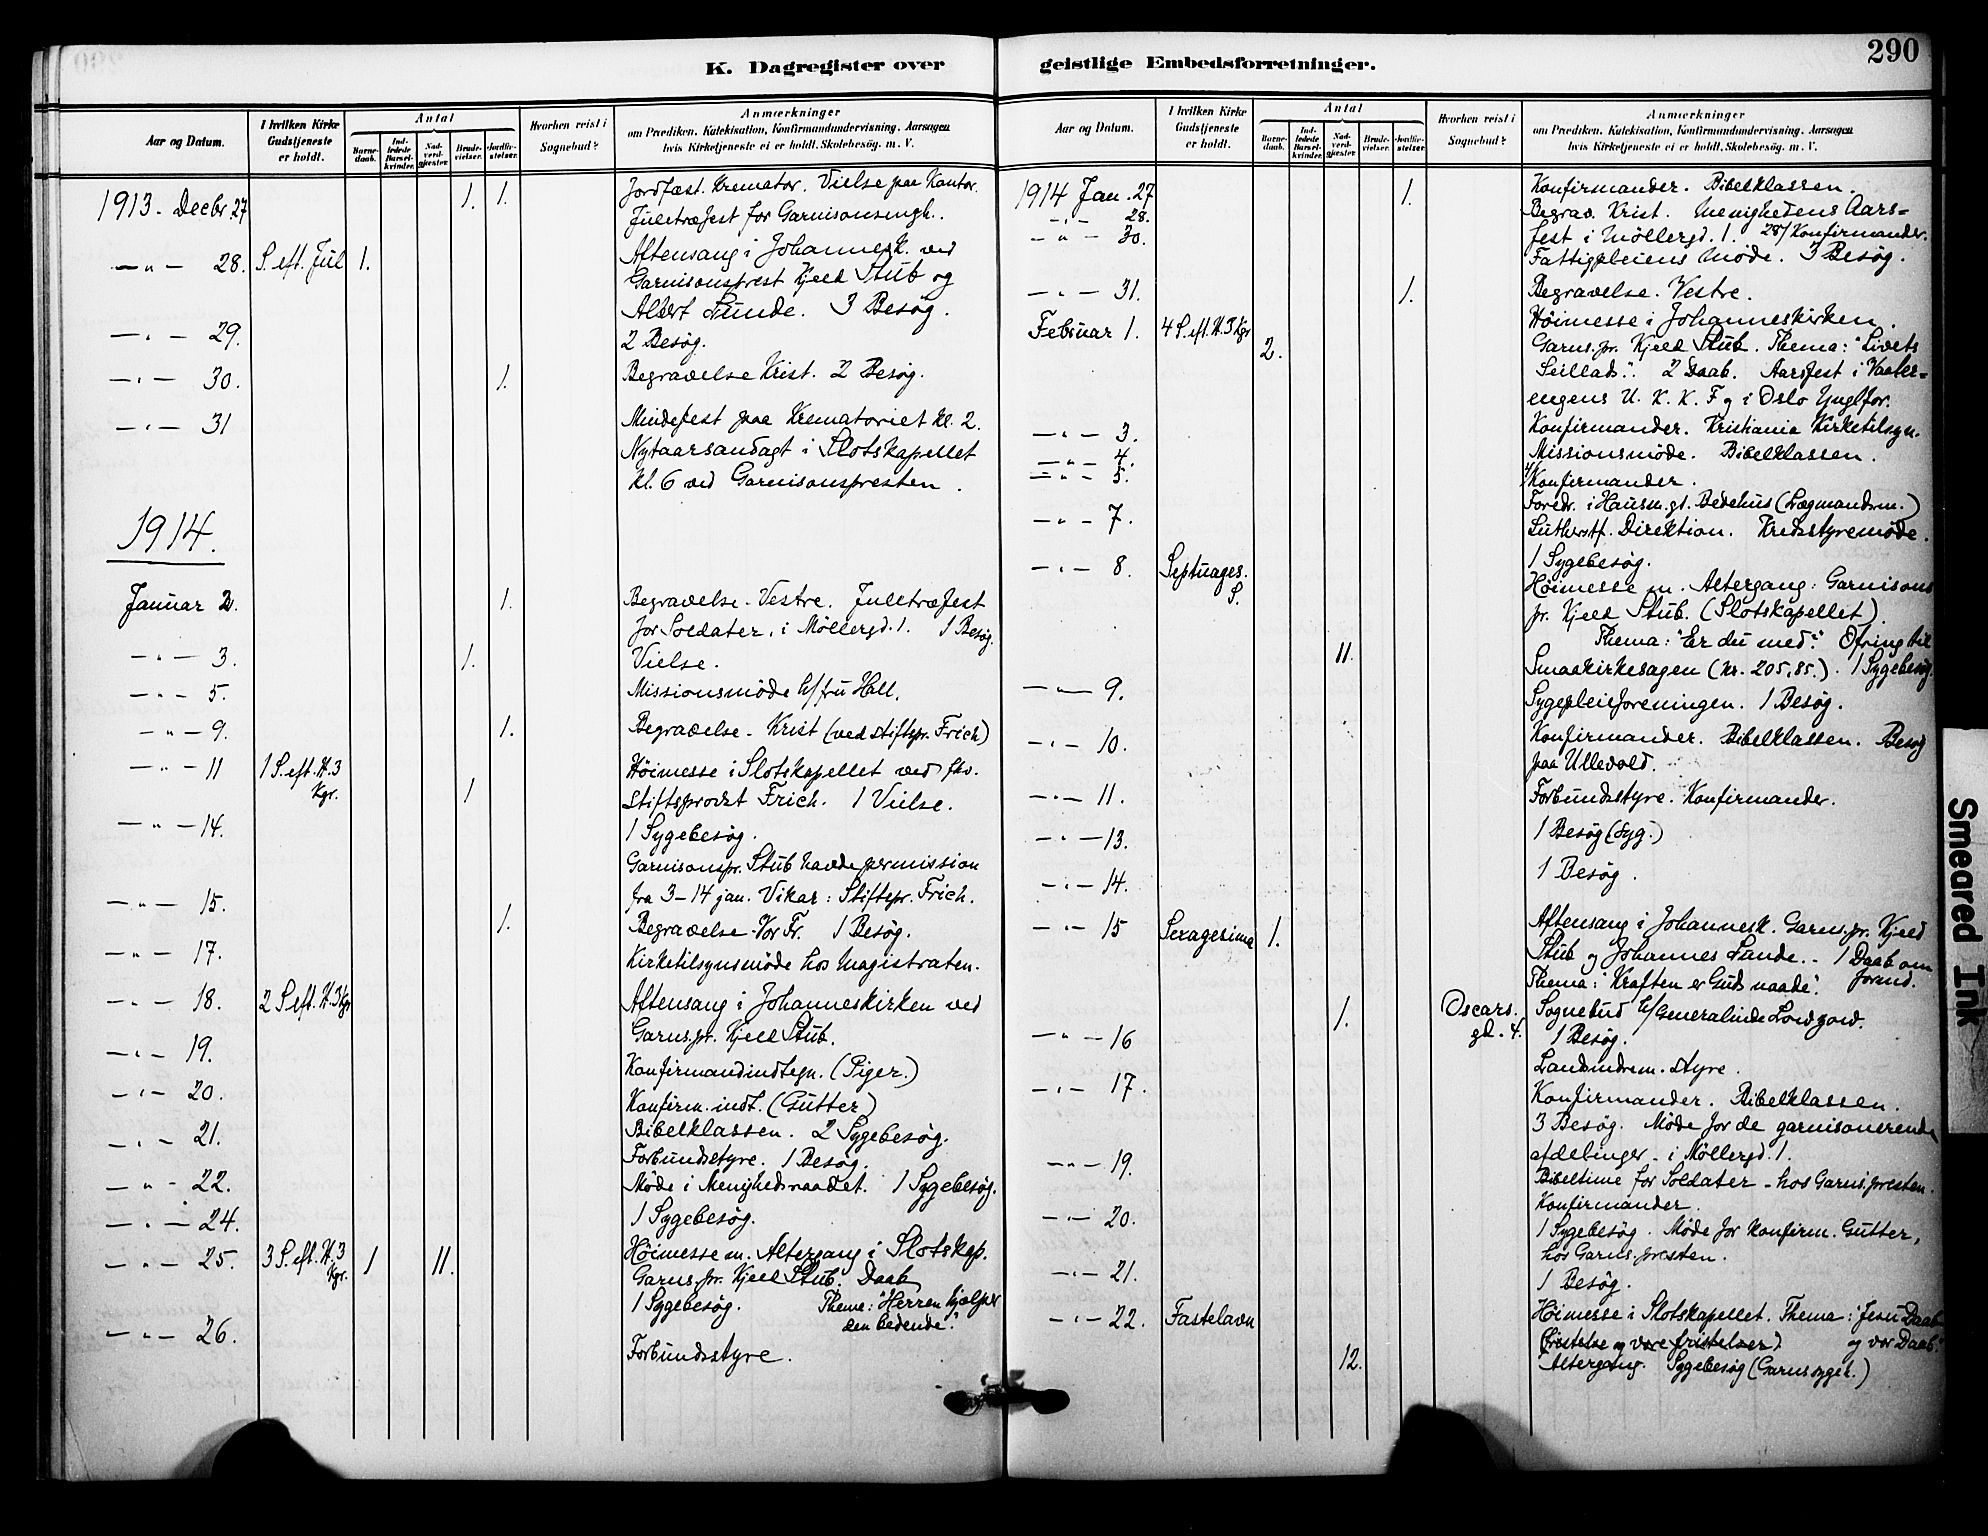 290
K. Dagregister over
geistlige Embedsforretninger.
Aar og Datum.
I hvilken Kirke Gudstjeneste er holdt.
Antal
Barne-daab.
Ind-ledede Barsel-kvinder.
Nad-verd-gjester.
Brude-vielser.
Jordfæ-stelser.
Hvorhen reist i Sognebud?
Anmærkninger
om Prædiken, Katekisation, Konfirmandundervisning, Aarsagen
hvis Kirketjeneste ei er holdt, Skolebesøg m. V.
1913. Decbr. 27 1. 1. Jordfæst. Kremator. Vielse paa Kontor.
Juletræfest for Garnisonsmgh.
— " — 28. S. eft. Jul 1. Aftensang i Johannesk. ved
Garnisonsprest Kjeld Stub og
Albert Lunde. 3 Besøg.
— " — 29. 2 Besøg.
— " — 30. 1. Begravelse Krist. 2 Besøg.
— " — 31 Mindefest paa Krematoriet kl. 2.
Nytaarsandagt i Slotskapellet
kl. 6 ved Garnisonspresten.
1914.
Januar 2. 1. Begravelse - Vestre. Juletræfest
for Soldater, i Møllergd. 1. 1 Besøg.
— " — 3. 1. Vielse.
— " — 5. Missionsmøde h/ fru Hall.
— " — 9. 1. Begravelse - Krist (ved stiftspr. Frich)
— " — 11 1 S. eft. H. 3 Kgr. 1 Høimesse i Slotskapellet ved fhv.
Stiftsprovst Frich. 1 Vielse.
— " — 14. 1 Sygebesøg.
Garnisonspr. Stub havde permission
fra 3–14 jan. Vikar: Stiftspr. Frich.
— " — 15. 1. Begravelse - Vor Fr. 1 Besøg.
— " — 17. Kirketilsynsmøde hos Magistraten.
— " — 18. 2 S. eft. H. 3 Kgr Aftensang i Johanneskirken ved
Garns. pr. Kjeld Stub.
— " — 19. Konfirmandindtegn. (Piger.)
— " — 20. Konfirm. indt. (Gutter)
Bibelklassen. 2 Sygebesøg.
— " — 21. Forbundsstyre. 1 Besøg.
— " — 22. Møde i Menighedsraadet. 1 Sygebesøg.
— " — 24. 1 Sygebesøg.
— " — 25. 3 S. eft. H. 3 Kgr. 1 11. Høimesse m. Altergang i Slotskap.
Garns. pr. Kjeld Stub. Daab
1 Sygebesøg. Thema: "Herren hjælper
den bedende".
— " — 26. Forbundsstyre.
Aar og Datum.
I hvilken Kirke Gudstjeneste er holdt.
Antal
Barne-daab.
Ind-ledede Barsel-kvinder.
Nad-verd-gjester.
Brude-vielser.
Jordfæ-stelser.
Hvorhen reist i Sognebud?
Anmærkninger
om Prædiken, Katekisation, Konfirmandundervisning, Aarsagen
hvis Kirketjeneste ei er holdt, Skolebesøg m. V.
1914 Jan. 27 1. Konfirmander. Bibelklassen.
— " — 28. Begrav. Krist. Menighedens Aars=
— " — 30. fest i Møllergd. 1. 28/ Konfirmander.
Fattigpleiens Møde. 3 Besøg.
— " — 31. 1. Begravelse. Vestre.
Februar 1. 4 S. eft. H. 3 Kgr 2. Høimesse i Johanneskirken.
Garns. pr. Kjeld Stub. Thema: "Livets
Seillads". 2 Daab. Aarsfest i Vaaler=
engens U. K. K. F og i Oslo Ynglfor.
— " — 3. Konfirmander. Kristiania Kirketilsyn.
— " — 4. Missionsmøde. Bibelklassen.
— " — 5. 4/ Konfirmander.
Foredr. i Hausm. gt. Bedehus (Lægmandsm.)
— " — 7. Lutherstf. Direktion. Kredsstyremøde.
1 Sygebesøg.
— " — 8. Septuages. S. Høimesse m. Altergang: Garnisons
pr. Kjeld Stub. (Slotskapellet)
Thema: "Er du med?" Ofring til
11. Smaakirkesagen (Kr. 205,85.). 1 Sygebesøg.
— " — 9. Sygepleieforeningen. 1 Besøg.
— " — 10. Konfirmander. Bibelklassen. Besøg
paa Ullevold.
— " — 11. Forbundsstyre. Konfirmander.
— " — 13. 1 Besøg (Syg.)
— " — 14. 1 Besøg.
— " — 15 Sexagesima 1. Aftensang i Johannesk. Garns. pr. Kjeld
Stub og Johannes Lunde. - 1 Daab om
Thema: "Kraften er Guds naade". formd.
1. Oscars. gd. 4. Sognebud h/ Generalinde
— " — 16 1 Besøg.
Landsindrem. styre.
— " — 17. Konfirmander. Bibelklassen.
3 Besøg. Møde for de garnisonerende
afdelinger - i Møllergd. 1.
— " — 19. Bibeltime for Soldater - hos Garns. presten.
Konfirmander.
— " — 20. 1 Sygebesøg. Møde for Konfirm. Gutter,
hos Garns. presten.
— " — 21. 1 Besøg.
— " — 22. Fastelavn Høimesse i Slotskapellet. Thema: "Jesu Daab
(fristelse og vore fristelser) og vor Daab."
12. Altergang. Sygebesøg (Garns sygeh.)
Smeared Ink